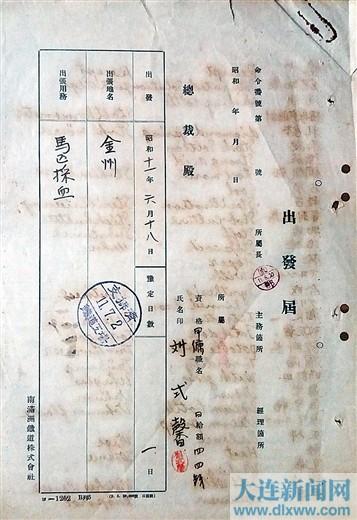 出發屆
命令番號第　　號
所屬長
主務箇所
經理箇所
昭和　年　月　日
總裁殿
所屬
資格 甲傭 職名
日給額
氏名印 刘式馨
出發 昭和十一年 六月十八日
豫定日數 一日
出張地名 金州
出張用務 馬匹採血
11.7.2
南滿洲鐵道株式會社
大连新闻网
www.dlxww.com